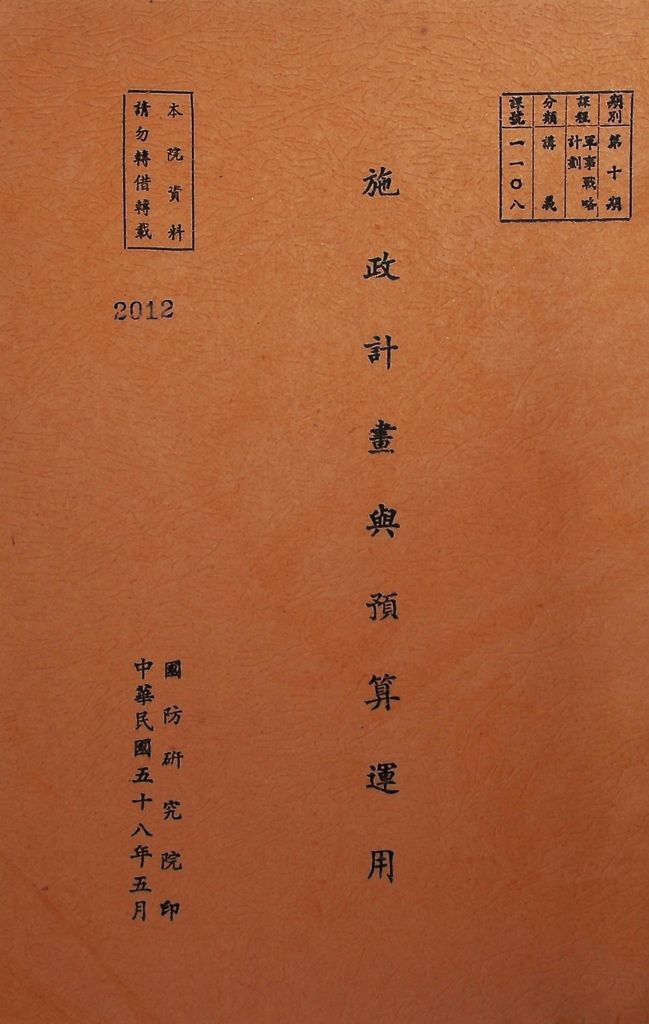 期別 第十期
課程 軍事戰略計劃
分類 講義
課號 一一〇八
施政計畫與預算運用
本院資料
請勿轉借轉載
2012
國防研究院印
中華民國五十八年五月